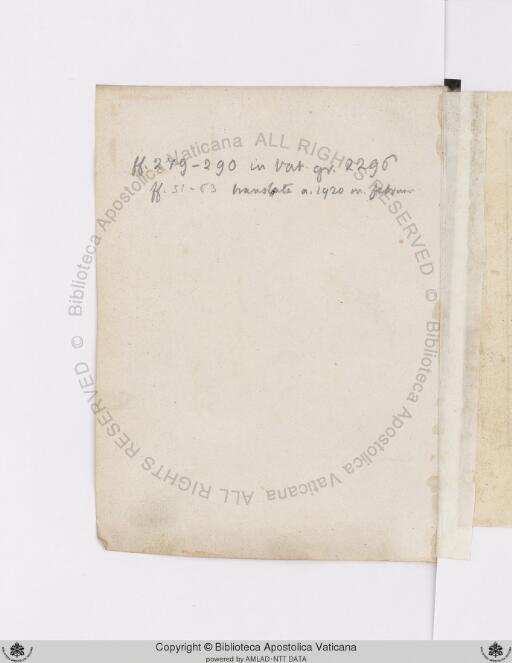 ff. 279-290 in Vat gr. 2296
ff. 51-63 translate a. 1920 m. februar
© Biblioteca Apostolica Vaticana ALL RIGHTS RESERVED
© Biblioteca Apostolica Vaticana ALL RIGHTS RESERVED
Copyright © Biblioteca Apostolica Vaticana
powered by AMLAD-NTT DATA